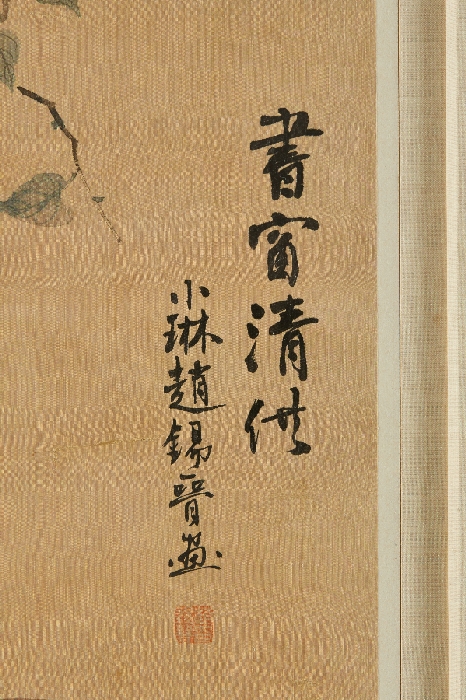 書窗清供
小琳趙錫晉畫